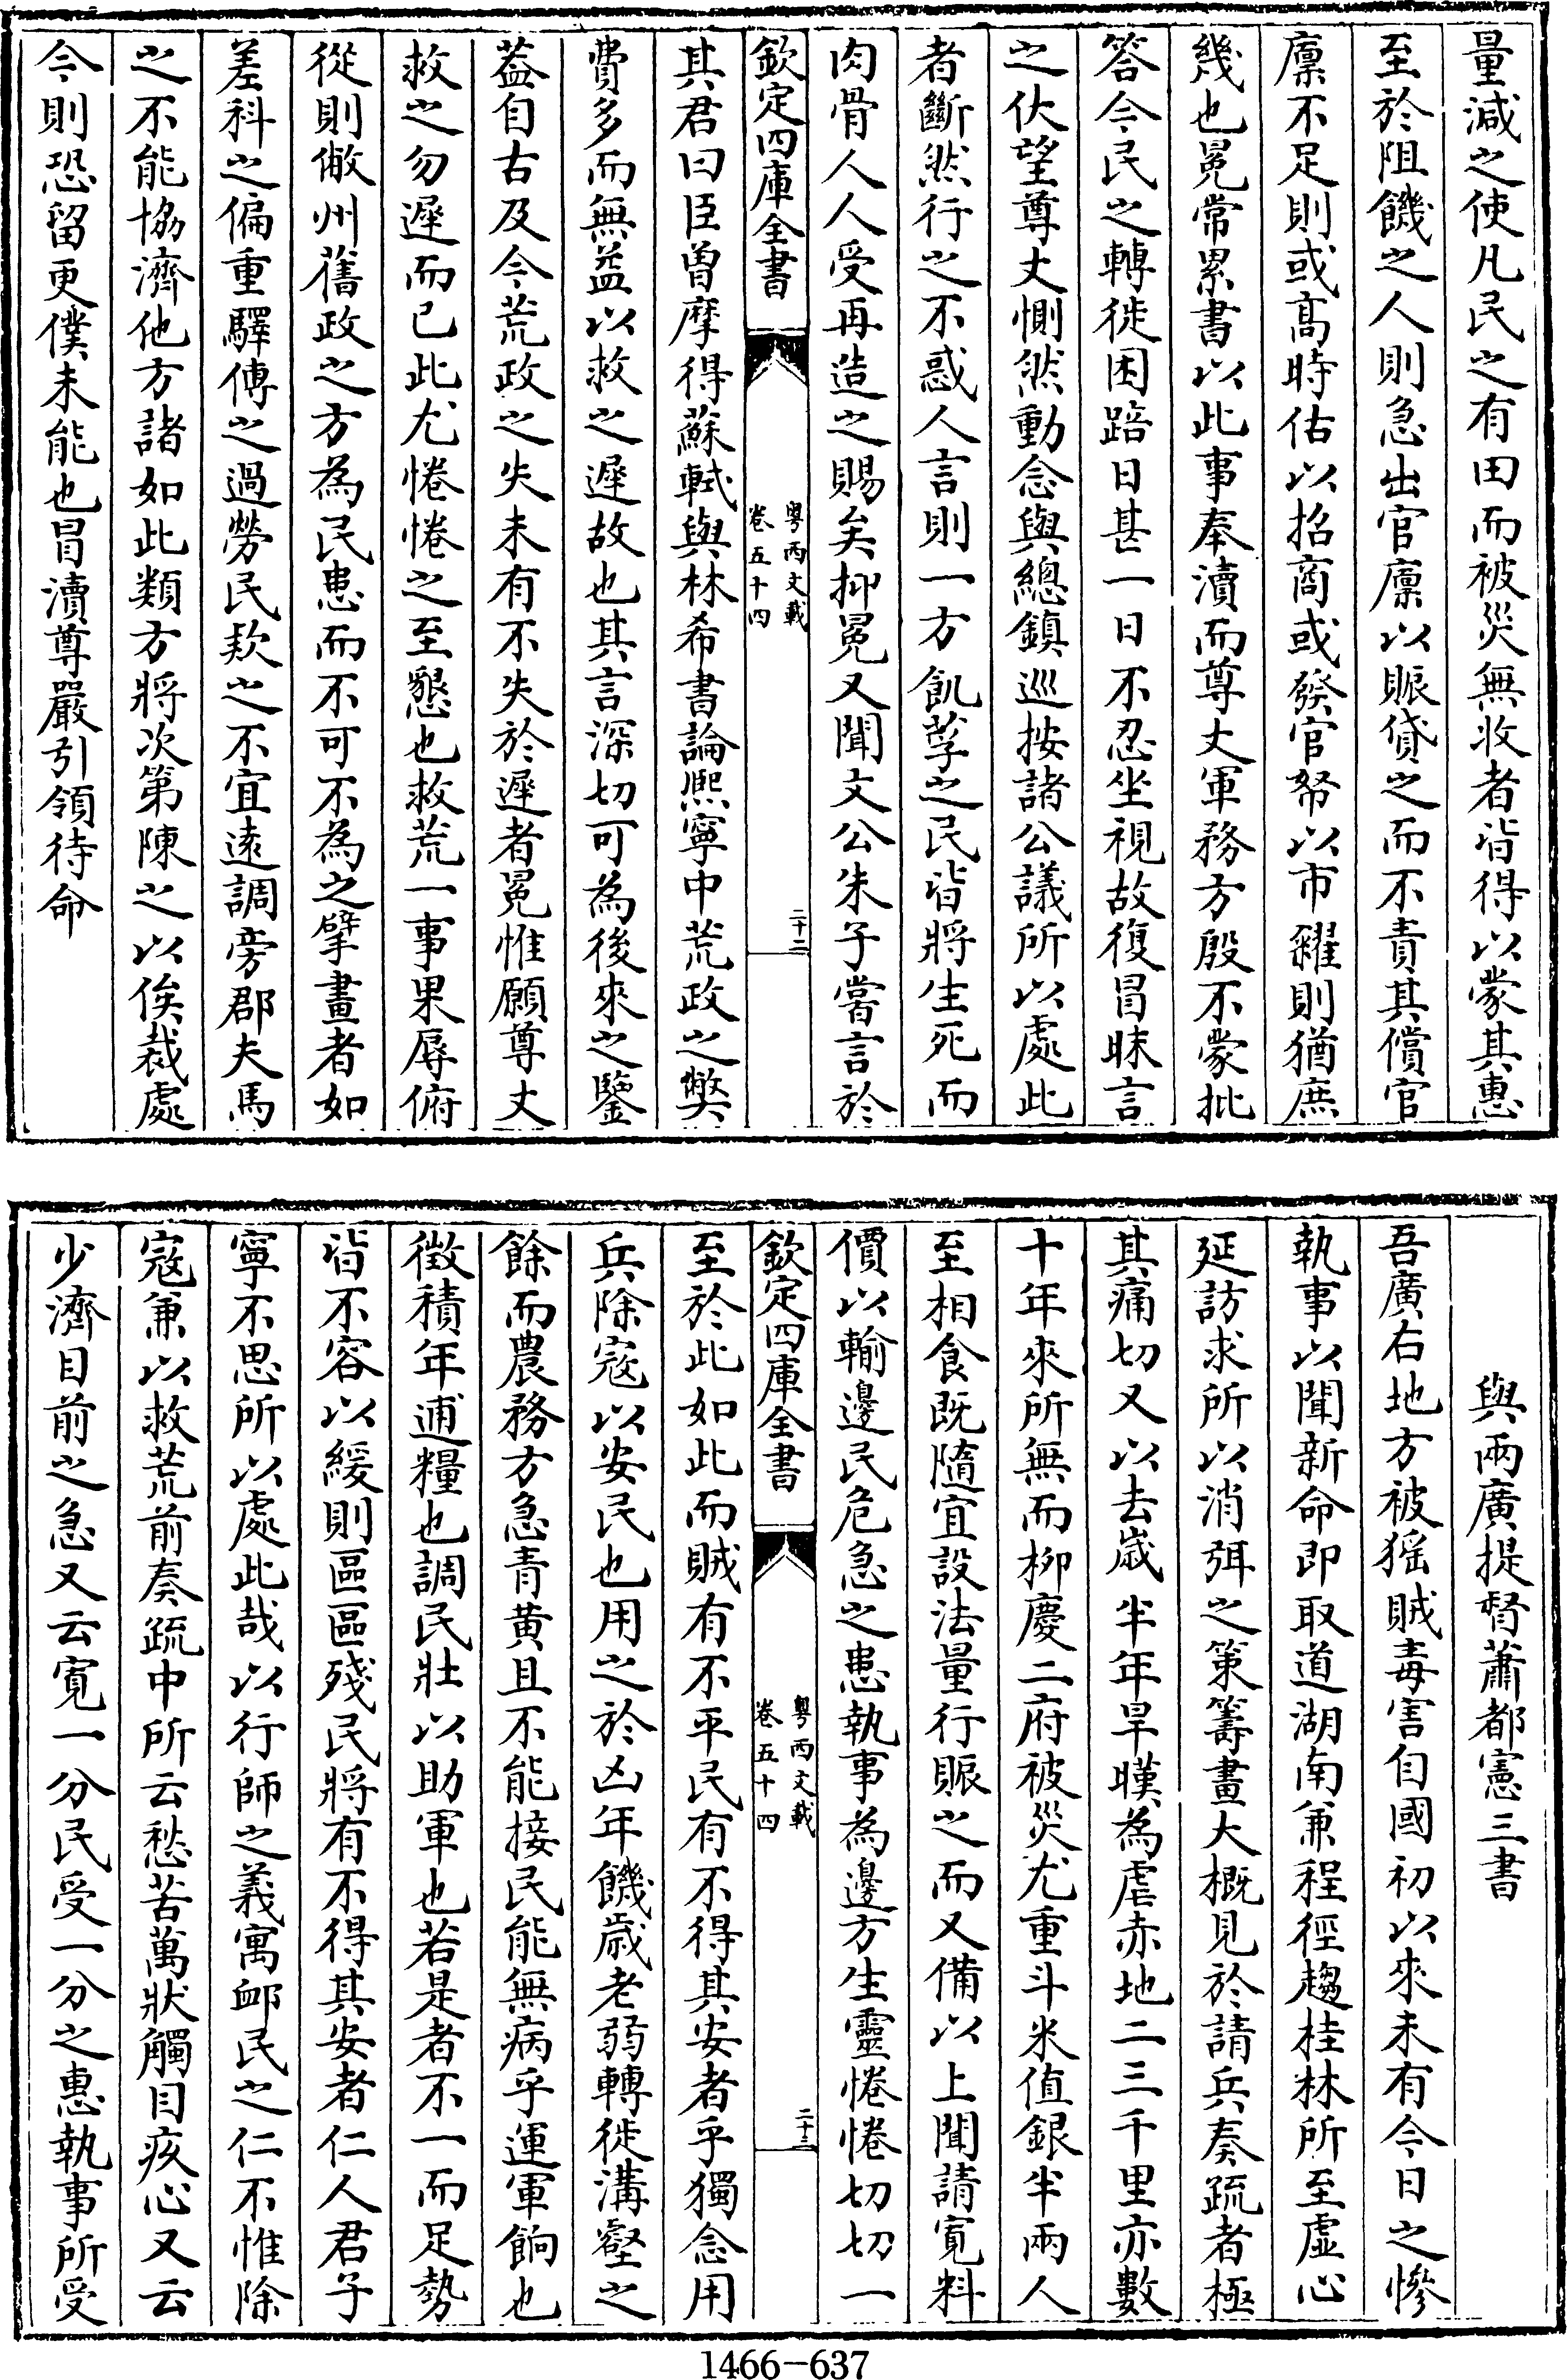 量減之使凡民之有田而被災無收者皆得以蒙其惠
至於阻饑之人則急出官廪以賑貸之而不責其償官
廪不足則或髙時估以招商或發官帑以市糴則猶庶
幾也冕常累書以此事奉瀆而尊丈軍務方殷不蒙批
答今民之轉徙困踣日甚一日不忍坐視故復冒昧言
之伏望尊丈惻然動念與總鎮巡按諸公議所以處此
者斷然行之不惑人言則一方飢莩之民皆將生死而
肉骨人人受再造之賜矣抑冕又聞文公朱子嘗言於
欽定四庫全書
粤西文載
卷五十四
二十二
其君曰臣曽摩得蘇軾與林希書論熙寧中荒政之弊
費多而無益以救之遲故也其言深切可為後來之鑒
葢自古及今荒政之失未有不失於遲者冕惟願尊丈
救之勿遲而已此尤惓惓之至懇也救荒一事果辱俯
從則敝州舊政之方為民患而不可不為之擘畫者如
差科之偏重驛傳之過勞民欵之不宜逺調旁郡夫馬
之不能協濟他方諸如此類方將次第陳之以俟裁處
今則恐留更僕未能也冒瀆尊嚴引領待命
與兩廣提督蕭都憲三書
吾廣右地方被猺賊毒害自國初以來未有今日之慘
執事以聞新命即取道湖南兼程徑趨桂林所至虚心
延訪求所以消弭之策籌畫大概見於請兵奏疏者極
其痛切又以去嵗半年旱暵為虐赤地二三千里亦數
十年來所無而柳慶二府被災尤重斗米值銀半兩人
至相食既隨宜設法量行賑之而又備以上聞請寛料
價以輸邊民危急之患執事為邊方生靈惓惓切切一
欽定四庫全書
粤西文載
卷五十四
二十三
至於此如此而賊有不平民有不得其安者乎獨念用
兵除寇以安民也用之於凶年饑嵗老弱轉徙溝壑之
餘而農務方急青黄且不能接民能無病乎運軍餉也
徴積年逋糧也調民壯以助軍也若是者不一而足勢
皆不容以緩則區區殘民將有不得其安者仁人君子
寧不思所以處此哉以行師之義寓䘏民之仁不惟除
寇兼以救荒前奏疏中所云愁苦萬狀觸目疚心又云
少濟目前之急又云寛一分民受一分之惠執事所受
1466-637